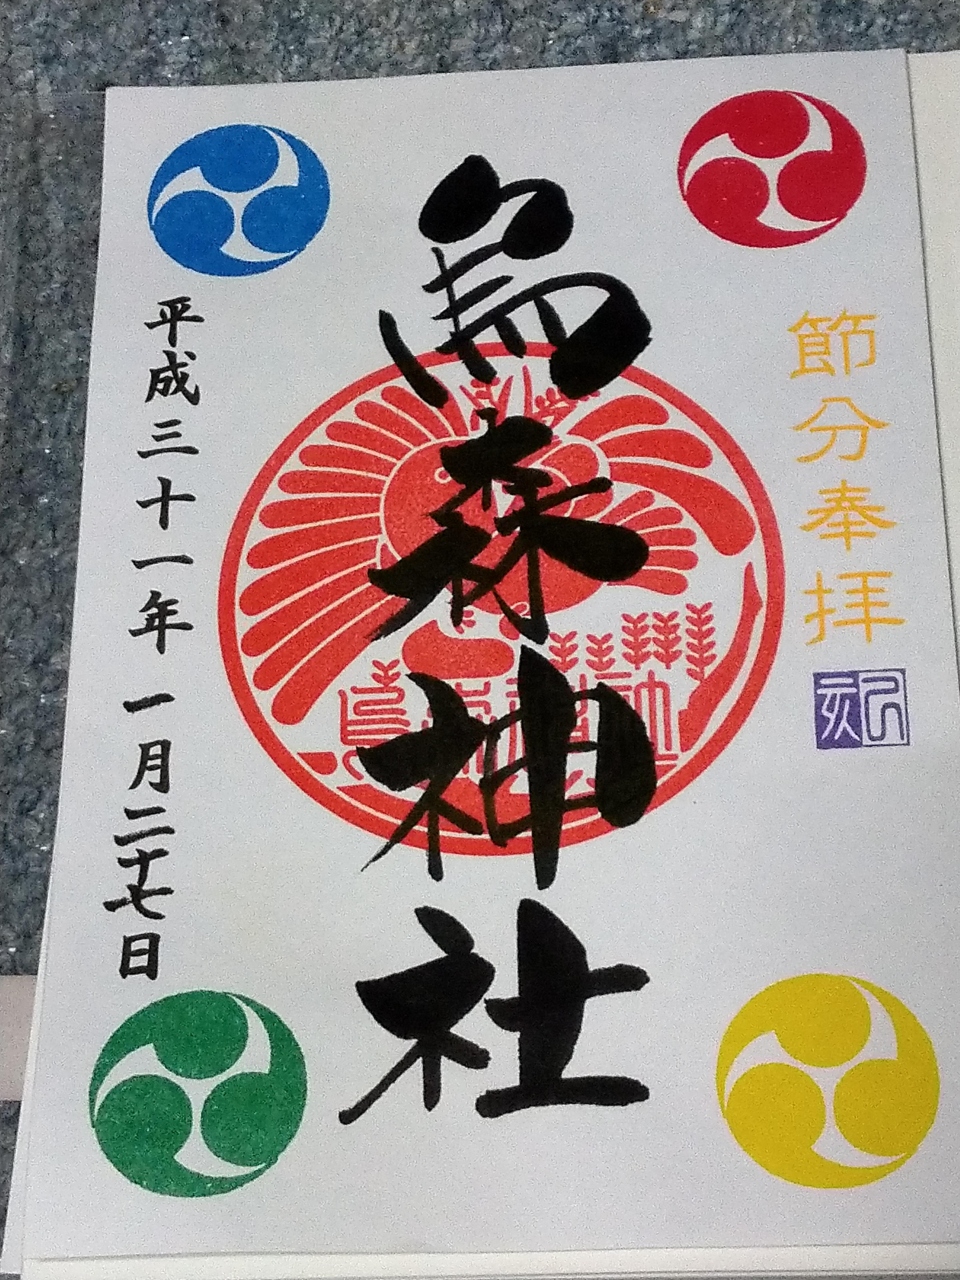 節分奉拝
己亥
烏森神社
平成三十一年 一月二十七日